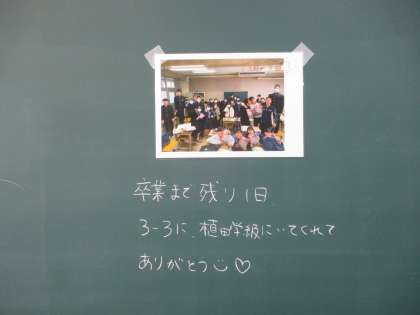 卒業まで残り1日
3-3に、植田学級にいてくれて
ありがとう♡